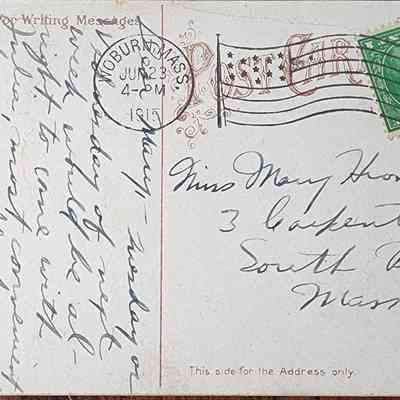 For Writing Messages
WOBURN, MASS.
JUN 23
4-PM
1915
POST CAR
Mary, – Tuesday or
Wednesday of next
week would be al-
right to come with
Julia, most convenient
Miss Mary
3 Carpent
South
Mass
This side for the Address only.